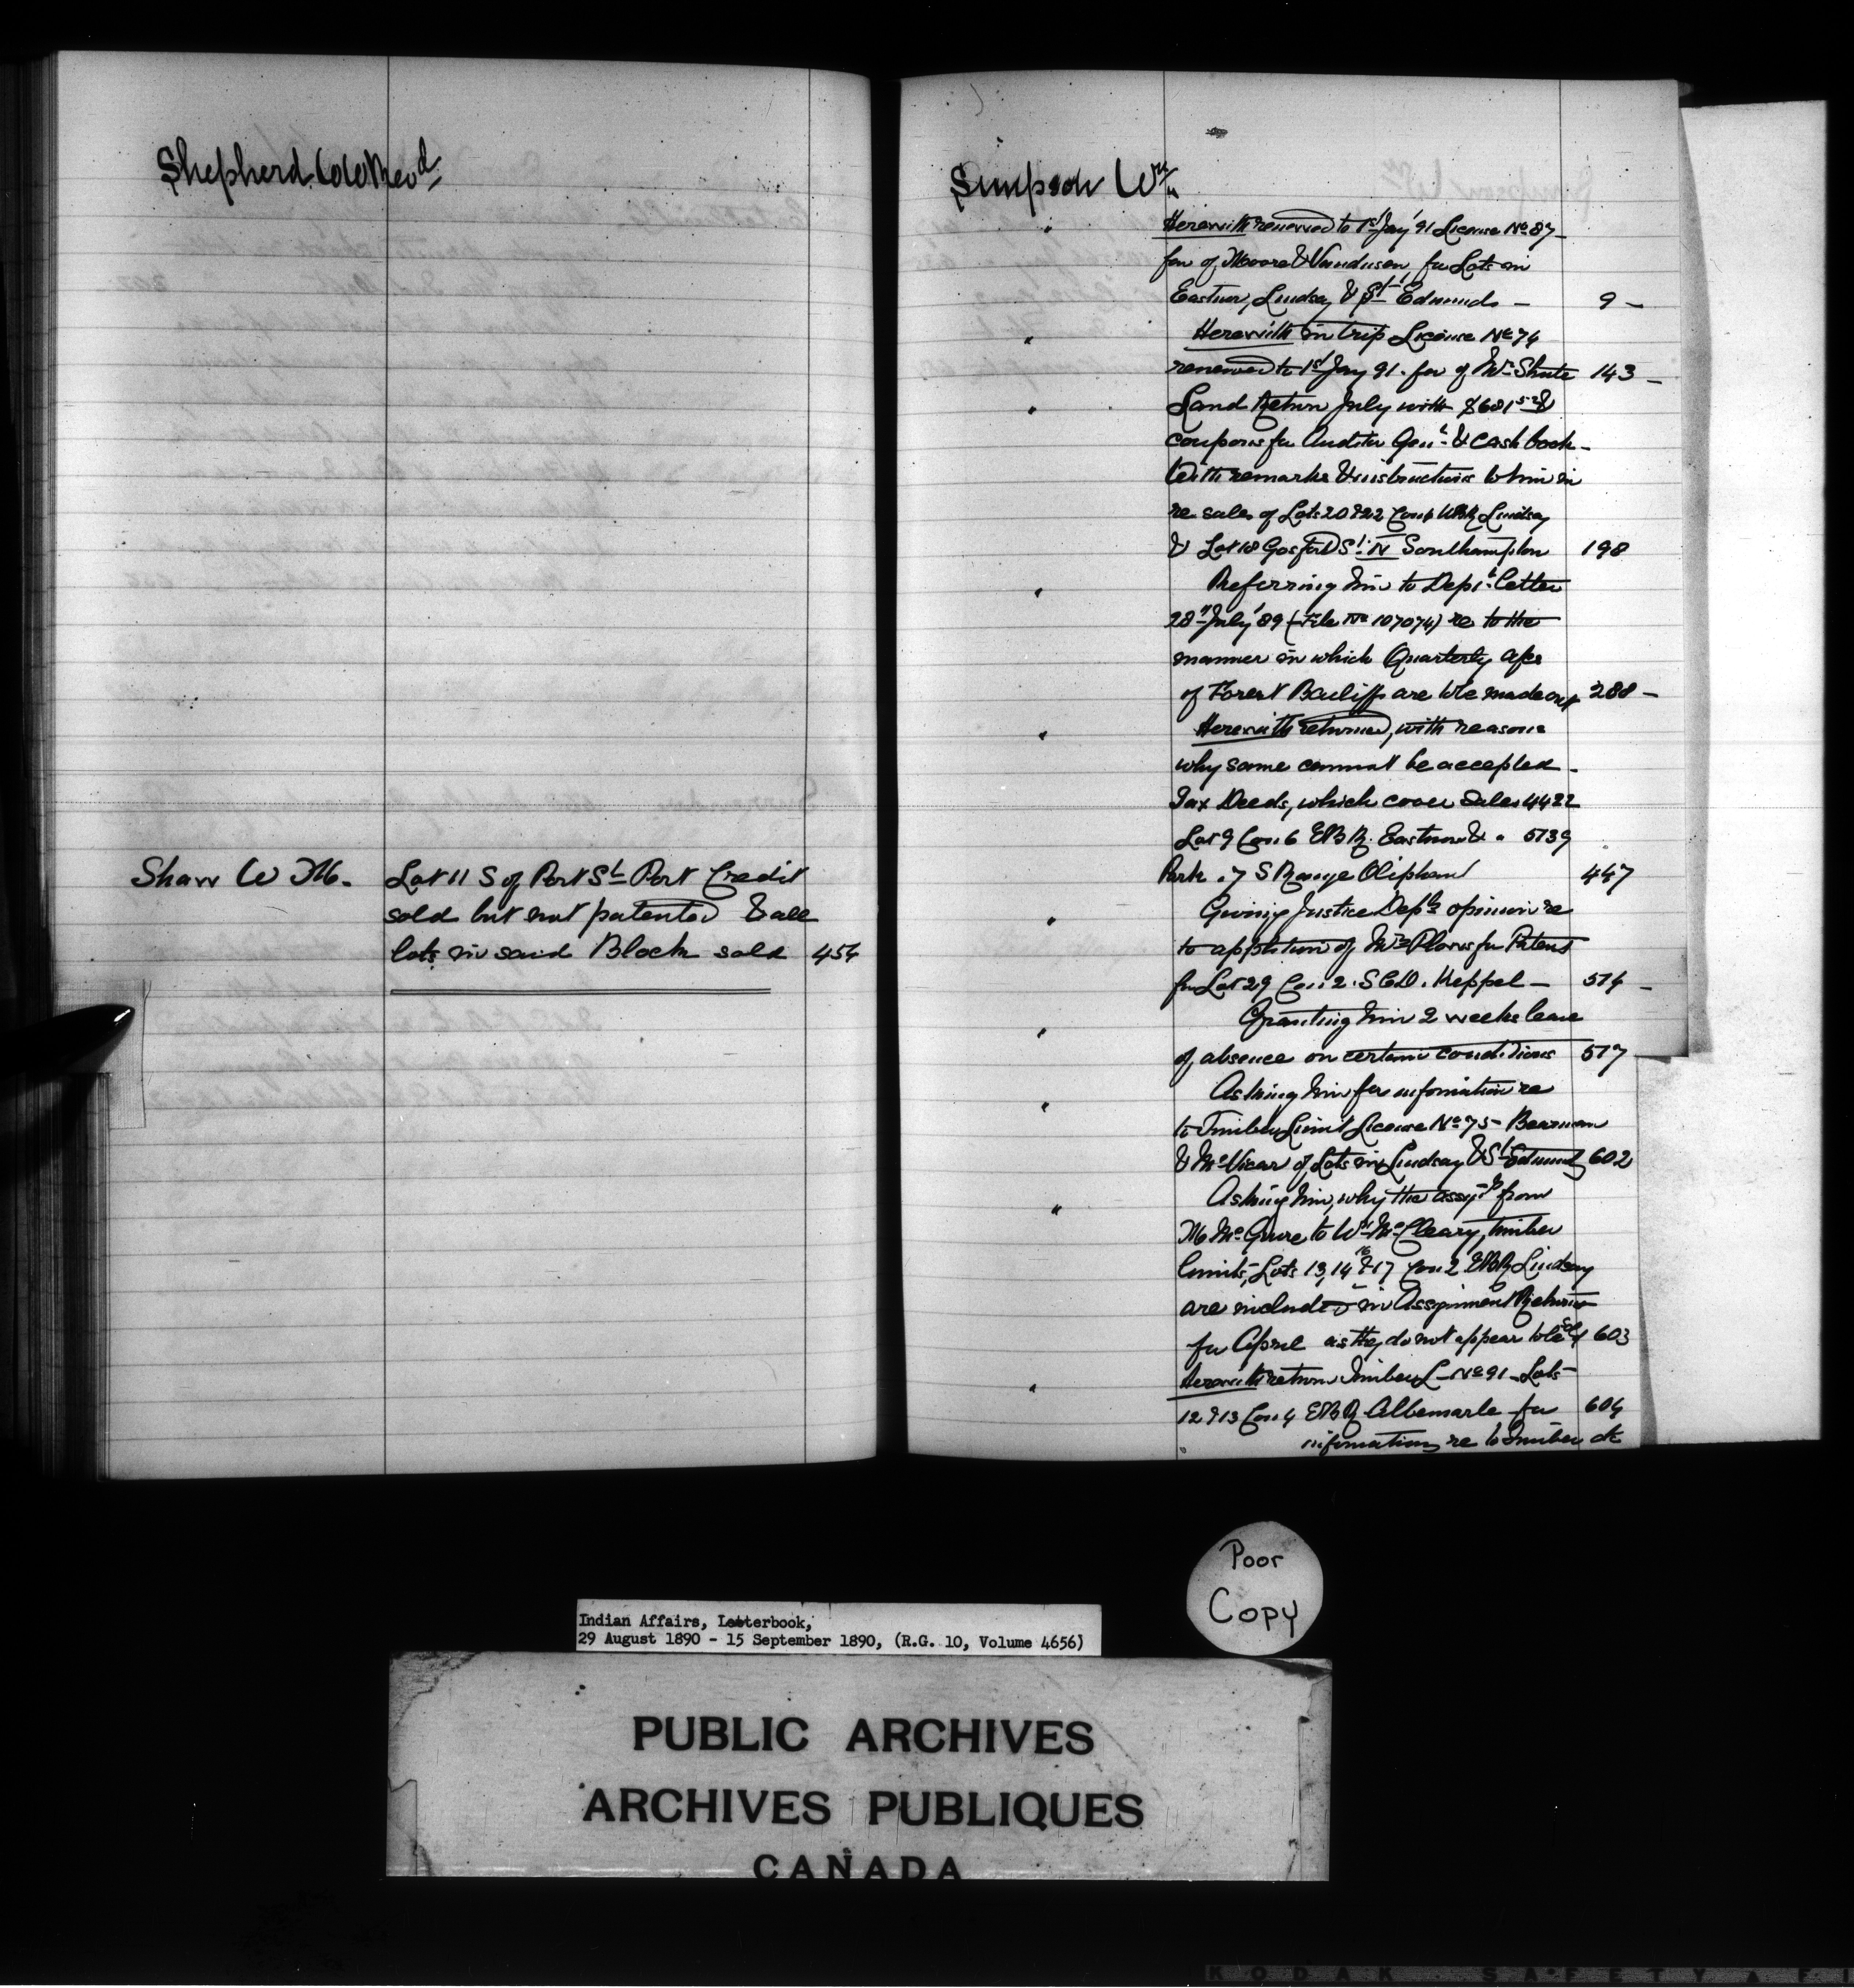 Shepherd W W Revd.
Shaw W M. Lot 11 S of Port St Port Credit
sold but not patented & all
lots in said Block sold 454
Simpson Wm
" Herewith renewed to 1st Jay '91 License No 87
fav of Moore & Vandusen, for Lots in
Eastnor, Lindsay & St Edmunds — 9 —
" Herewith in trip License No 74
renewed to 1st Jay 91. fav of Wm Shute 143 —
" Land Return July with $681 52 &
coupons for Auditor Genl & Cash book —
With remarks & instructions to him in
re sales of Lots 20 & 22 Con 4 WBR Lindsay
& Lot 18 Gosford St N Southampton 198
" Referring him to Dept letter
28th July '89 (File No 107074) re to the
manner in which Quarterly a/cs
of Forest Bailiff are to be made out 288 —
" Herewith returned, with reasons
why same cannot be accepted —
Tax Deeds, which cover Sales 4422
Lot 9 Con 6 EBR. Eastnor & " 5739
Park . 7 S Range Oliphant 447
" Giving Justice Dept's opinion re
to appltion of for Patent
for Lot 29 Con 2. SCD. Keppel — 514 —
" Granting him 2 weeks leave
of absence on certain conditions 517
" Asking him for information re
to Timber Limit License No 75 — Bearman
& McVicar of Lots in Lindsay & St Edmund 602
" Asking him, why the assyt from
M McGuire to Wm McCleary, timber
limits, Lots 13, 14 16 & 17 Con 2 EBR Lindsay
are included in Assignment Returns
for April as they do not appear to be sold 603
" Herewith return Timber L — No 91 — Lots
12 & 13 Con 4 EBR Albemarle for 604
information re to timber &c
Poor
Copy
Indian Affairs, Letterbook,
29 August 1890 - 15 September 1890, (R.G. 10, Volume 4656)
PUBLIC ARCHIVES
ARCHIVES PUBLIQUES
CANADA
KODAK SAFETY FI